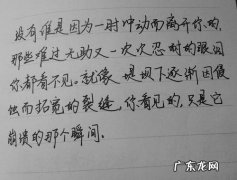 没有谁是因为一时冲动而离开你的,
那些难过无助又一次次忍耐的瞬间
你都看不见。就像 堤坝下逐渐因侵
蚀而拓宽的裂缝,你看见的,只是它
崩溃的那个瞬间.
广东龙网